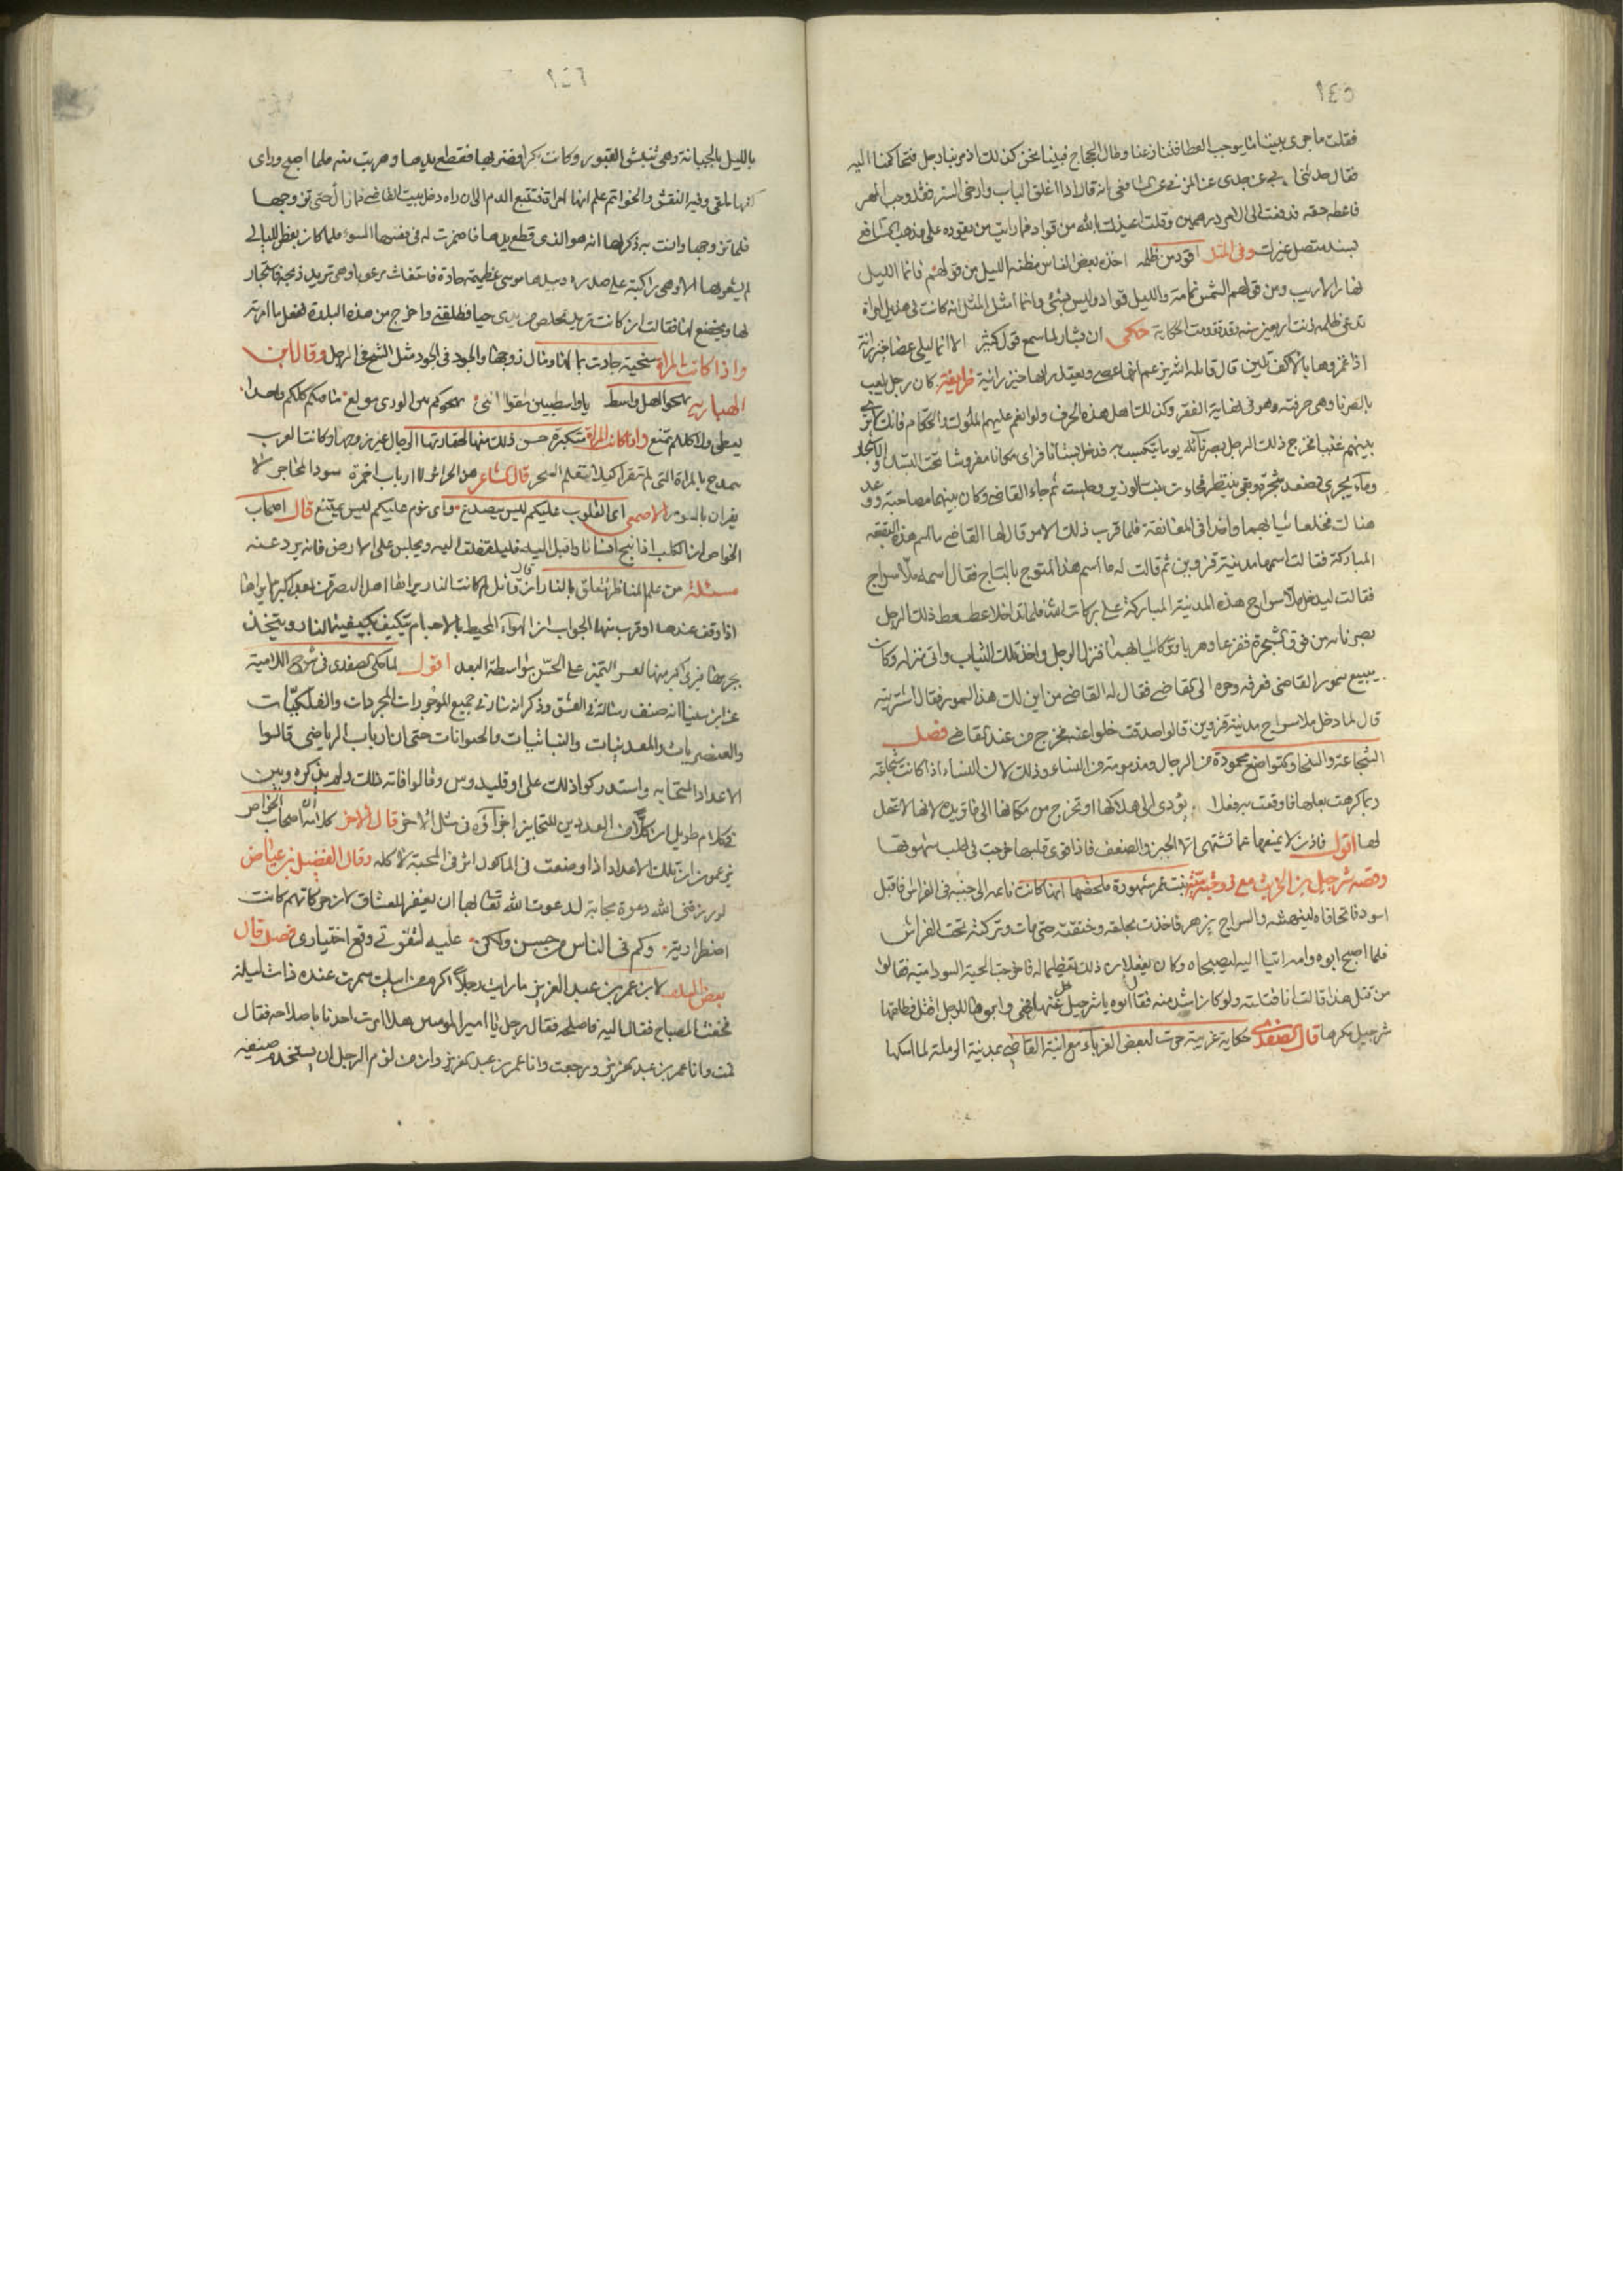 ١٤٥
فقلت ما جرى بيننا ما يوجب العطا فتنازعنا وطال الحجاج فبينا نحن كذلك اذ مر بنا رجل فتحاكمنا اليه
فقال حدثنى ابى عن جدى عن المزنى عن الشافعى انه قال اذا اغلق الباب وارخى الستر فقد وجب المهر
فاعطه حقه فدفعت الى الامرد درهمين وقلت اعيذك بالله من قواد فما رايت من يقود على مذهب الشافعى
بسند متصل غيرك وفى المثل اقود من ظلمه اخذه بعض الناس مظنه الليل من قولهم فانما الليل
نهار الاريب ومن قولهم الشمس نمامة والليل قواد وليس بشئ وانما امثل المثل انه كانت فى هذيل امراة
تدعى ظلمه زنت اربعين سنه وقد تقدمت الحكاية حكى ان بشار لما سمع قول كثير الا انما ليلى عصا خيزرانة
اذا غمزوها بالاكف تلين قال قاتله الله يزعم انها عصى ويعتذر بانها خيزرانة ظريفة كان رجل يلعب
بالصرنا وهى حرفته وهو فى نهاية الفقر وكذلك اهل هذه الحرف ولو انعم عليهم الملوك والحكام فانك لا ترى
بينهم غنيا فخرج ذلك الرجل بصرناته يوما يتكسب به فدخل بستانا فراى مكانا مفروشا تحت
وماء يجرى فصعد شجرة وبقى ينتظر فجاءت بنت الوزير وجلست ثم جاء القاضى وكان بينهما مصاحبة ووعد
هناك فخلعا ثيابهما واخذا فى المعانقة فلما قرب ذلك الامر قال لها القاضى ما اسم هذه البقعه
المباركة فقالت اسمها مدينة قزوين ثم قالت له ما اسم هذا المتوج بالتاج فقال اسمه ملا سراج
فقالت ليدخل ملا سراج هذه المدينة المباركة على بركات الله فلما تداخلا عطعط ذلك الرجل
بصرناته من فوق الشجرة ففزعا وهربا وتركا ثيابهما فنزل الرجل واخذ تلك الثياب واتى منزله وكان
يبيع سمور القاضى فعرفه وجره الى القاضى فقال له القاضى من اين لك هذا السمور فقال اشتريته
قال لما دخل ملا سراج مدينة قزوين قال صدقت خلوا عنه فخرج من عند القاضى فصل
الشجاعة والسخا والتواضع محمودة من الرجال ومذمومة من النساء وذلك لان النساء اذا كانت شجاعة
ربما كرهت بعلها فاوقعت به فعلا يؤدى الى هلاكها او تخرج من مكانها الى ما تريده لانها لا عقل
لها اقول فاذن لا يمنعها عما تشتهى الا الجبن والضعف فاذا قوى قلبها خرجت فى طلب شهوتها
وقصة شرحبيل بن الحرث مع زوجته بنت عمر مشهورة ملخصها انها كانت نائمه الى جنبه فى الفراش فاقبل
اسود فاتحا فاه لينهشه والسراج يزهر فاخذت بحلقه وخنقته حتى مات وتركته تحت الفراش
فلما اصبح ابوه وامه اتيا اليه ليصبحاه وكان يفعلان ذلك تعظيما له فاخرجت الحية السودا ميتة فقالوا
من قتل هذا قالت انا قتلته ولو كان اشد منه فقال ابوه يا شرحبيل خل عنها فهى وابيها للرجل اقتل فطلقها
شرحبيل مكرها قال الصفدى حكاية غريبة جرت لبعض الغرباء مع ابنة القاضى بمدينة الرملة لما امسكها
١٤٦
بالليل بالجبانة وهى تنبش القبور وكانت بكرا فضربها فقطع يدها وهربت منه فلما اصبح وراى
كفها ملقى وفيه النقش والخواتم علم انها امراة فتتبع الدم الى ان راه دخل بيت القاضى فما زال حتى تزوجها
فلما تزوجها وانست به ذكر لها انه هو الذى قطع يدها فاضمرت له فى نفسها السوء فلما كان بعض الليالى
لم يشعر بها الا وهى راكبة على صدره وبيدها موسى عظيمة حادة فاستفاق مرعوبا وهى تريد ذبحه فاستجار
لها وخضع لها فقالت ان كانت تريد تخلص من يدى حيا فطلقنى واخرج من هذه البلدة ففعل ما امرته
واذا كانت المراة سخية جادت بما لها ومال زوجها والجود فى الخود مثل الشح فى الرجل وقال ابن
الهبارية يهجو اهل واسط يا واسطيين ثقوا اننى بهجوكم بين الورى مولع ما فيكم كلكم واحدا
يعطى ولا كلكم تمنع واذا كانت المراة متكبرة حسن ذلك منها لحقارتها الرجال غير زوجها وكانت العرب
تمدح بالمراة التى لم تقرا كيلا تتعلم السحر قال الشاعر هن الحرائر لا ارباب اخمرة سود المحاجر لا
يقران بالسور الاصمعى اى القلوب عليكم ليس ينصدع واى نوم عليكم ليس يمتنع قال اصحاب
الخواص ان الكلب اذا نبح انسانا واقبل اليه فليلتفت اليه ويجلس على الارض فانه يرد عنه
مسئلة من علم المناظر تتعلق بالنار ان قال قائل لم كانت النار يراها اهل البصر من بعد اكبر مما يراها
اذا وقف عندها او قرب منها الجواب ان الهواء المحيط بالاجسام يتكيف بكيفية النار ويتخذ
بجرمها فيرى اكبر منها لعسر التميز على الحس بواسطة البعد اقول لما حكى الصفدى فى شرح اللامية
عن ابن سينا انه صنف رسالة فى العشق وذكر انه سار فى جميع الموجودات المجردات والفلكيات
والعنصريات والمعدنيات والنباتيات والحيوانات حتى ان ارباب الرياضى قالوا
الاعداد المتحابه واستدركوا ذلك على اوقليدوس وقالوا فاته ذلك ولم يذكره وبين
فى كلام طويل ان كلا من العددين المتحابين اجزاؤه مثل الاخر قال الاخر كلا انه اصحاب الخواص
يزعمون ان تلك الاعداد اذا وضعت فى الماكول اثر فى المحبة لاكله وقال الفضيل بن عياض
لو رزقنى الله دعوة مجابة لدعوت الله تعالى بها ان يغفر للعشاق لان حركاتهم كانت
اضطرارية وكم فى الناس من حسن ولكن عليه لشقوتى وقع اختيارى فصل قال
بعض السلف لابن عمر بن عبد العزيز ما رايت رجلا اكرم من ابيك سمرت عنده ذات ليلة
فخفت المصباح فقال اليه فاصلحه فقال رجل يا امير المومنين هلا امرت احدنا باصلاحه فقال
قمت وانا عمر بن عبد العزيز ورجعت وانا عمر بن عبد العزيز وان من لؤم الرجل ان يستخدم ضيفه